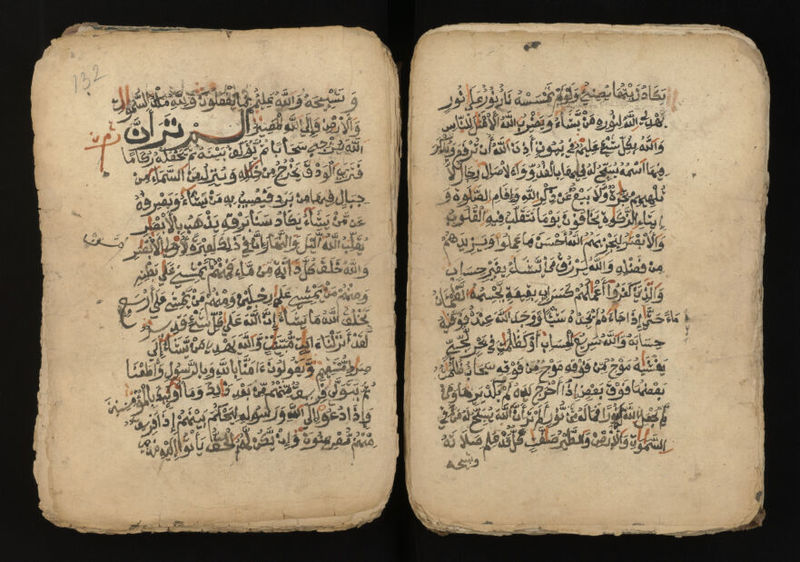 يكاد زيتها يضيء ولو لم تمسسه نار نور على نور
يهدي الله لنوره من يشاء ويضرب الله الأمثل للناس
والله بكل شيء عليم في بيوت أذن الله أن ترفع ويذكر
فيها اسمه يسبح له فيها بالغدو والاصال رجال لا
تلهيهم تجرة ولا بيع عن ذكر الله وإقام الصلوة و
إيتاء الزكوة يخافون يوما تتقلب فيه القلوب
والأبصر ليجزيهم الله أحسن ما عملوا ويزيدهم
من فضله والله يرزق من يشاء بغير حساب
والذين كفروا أعملهم كسراب بقيعة يحسبه الظمئان
ماء حتى إذا جاءه لم يجده شيئا ووجد الله عنده فوفيه
حسابه والله سريع الحساب أو كظلمت في بحر لجي
يغشيه موج من فوقه موج من فوقه سحاب ظلمت
بعضها فوق بعض إذا أخرج يده لم يكد يريها ومن
لم يجعل الله له نورا فما له من نور ألم تر أن الله يسبح له من في
السموت والأرض والطير صفت كل قد علم صلاته
وتسبيحه
132
وتسبيحه والله عليم بما يفعلون ولله ملك السموت
والأرض وإلى الله المصير ألم تر أن
الله يزجي سحابا ثم يؤلف بينه ثم يجعله ركاما
فترى الودق يخرج من خلله وينزل من السماء من
جبال فيها من برد فيصيب به من يشاء ويصرفه
عن من يشاء يكاد سنا برقه يذهب بالأبصر
يقلب الله اليل والنهار إن في ذلك لعبرة لأولي الأبصر
والله خلق كل دابة من ماء فمنهم من يمشي على بطنه
ومنهم من يمشي على رجلين ومنهم من يمشي على أربع
يخلق الله ما يشاء إن الله على كل شيء قدير
لقد أنزلنا ءايت مبينت والله يهدي من يشاء إلى
صراط مستقيم ويقولون ءامنا بالله وبالرسول وأطعنا
ثم يتولى فريق منهم من بعد ذلك وما أولئك بالمؤمنين
وإذا دعوا إلى الله ورسوله ليحكم بينهم إذا فريق
منهم معرضون وإن يكن لهم الحق يأتوا إليه